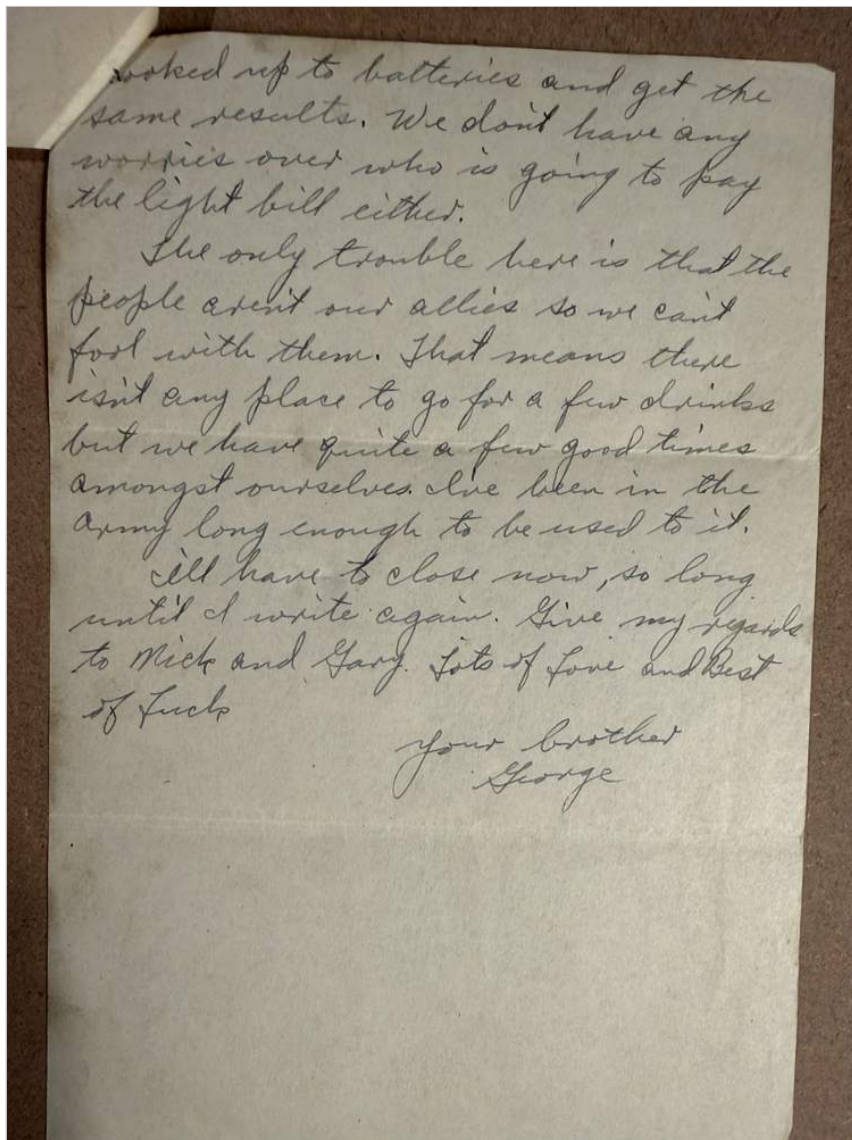 hooked up to batteries and get the
same results. We don't have any
worries over who is going to pay
the light bill either.
The only trouble here is that the
people aren't our allies so we can't
fool with them. That means there
isn't any place to go for a few drinks
but we have quite a few good times
amongst ourselves. I've been in the
army long enough to be used to it.
I'll have to close now, so long
until I write again. Give my regards
to Mick and Gary. Lots of Love and Best
of Luck
Your brother
George